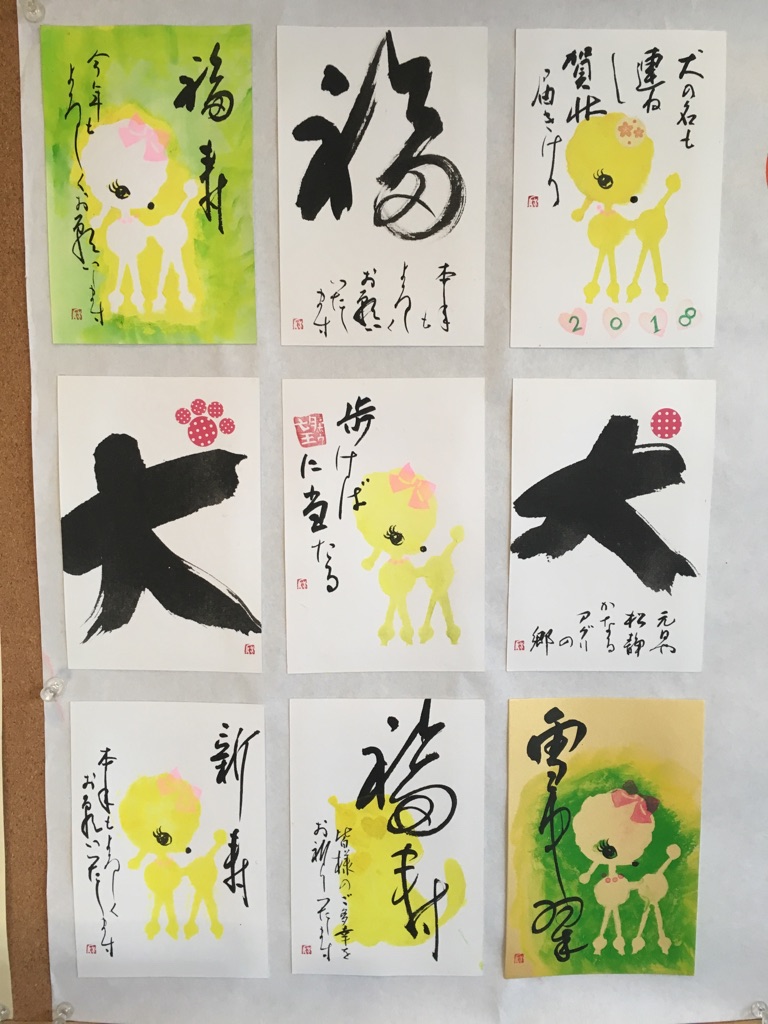 福寿
今年も
よろしくお願いします
福
本年も
よろしく
お願い
いたし
ます
犬の名も
連ねし
賀状
届きけり
2018
犬
歩けば
に当たる
犬
元旦や
松静
かなる
アグリ
の
郷
新寿
本年もよろしく
お願いいたします
福寿
皆様のご多幸を
お祈りいたします
雪中翠